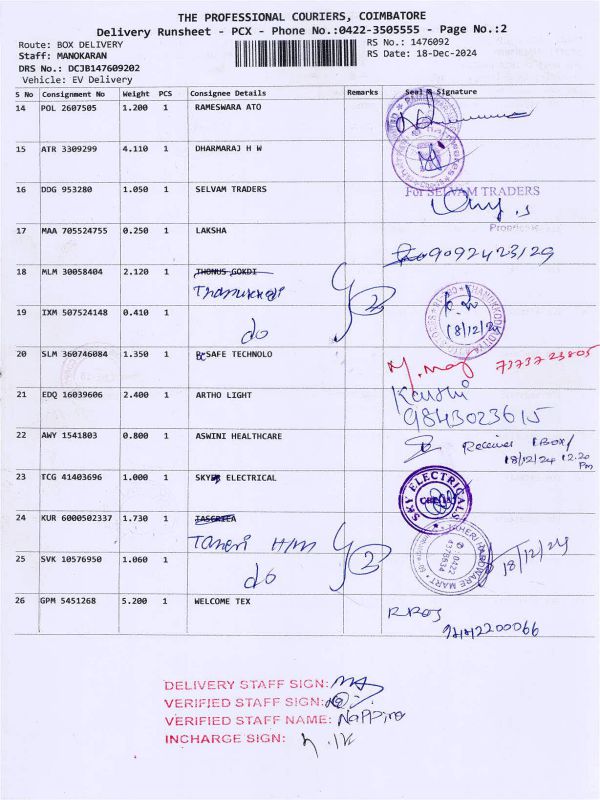 THE PROFESSIONAL COURIERS, COIMBATORE
Delivery Runsheet - PCX - Phone No.:0422-3505555 - Page No.:2
Route: BOX DELIVERY
RS No.: 1476092
Staff: MANOKARAN
RS Date: 18-Dec-2024
DRS No.: DCJB147609202
Vehicle: EV Delivery
S No Consignment No Weight PCS Consignee Details Remarks Seal & Signature
14 POL 2607505 1.200 1 RAMESWARA ATO
15 ATR 3309299 4.110 1 DHARMARAJ H W
16 DDG 953280 1.050 1 SELVAM TRADERS
For SELVAM TRADERS
17 MAA 705524755 0.250 1 LAKSHA
9092423129
18 MLM 30058404 2.120 1 THONUS GOKDI
19 IXM 507524148 0.410 1
do
18/12/24
20 SLM 360746084 1.350 1 B SAFE TECHNOLO
7373723805
21 EDQ 16039606 2.400 1 ARTHO LIGHT
9843023615
22 AWY 1541803 0.800 1 ASWINI HEALTHCARE
18/12/24 12.20 Pm
23 TCG 41403696 1.000 1 SKY ELECTRICAL
SKY ELECTRICALS
24 KUR 6000502337 1.730 1
Taheri H/M
TAHERI HARDWARE MART
0422
4378634
18/12/24
25 SVK 10576950 1.060 1
do
26 GPM 5451268 5.200 1 WELCOME TEX
DELIVERY STAFF SIGN:
VERIFIED STAFF SIGN:
VERIFIED STAFF NAME:
INCHARGE SIGN: